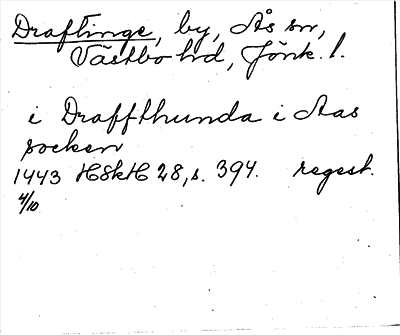 Draftinge, by, Ås sn,
Västbo hd, Jönk. l.
i Draffthunda i Aas
socken
1443 HSkH 28, s. 394. regest.
4/10